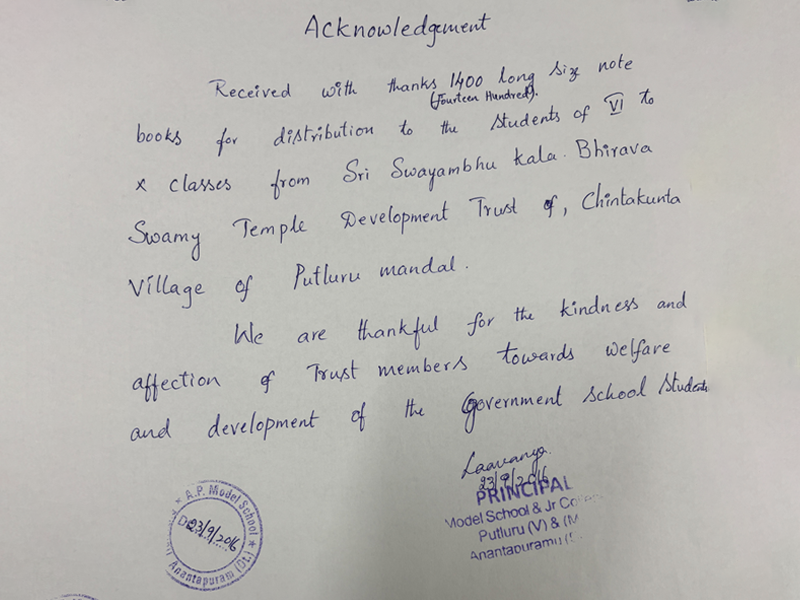 Acknowledgement
Received with thanks 1400 long size note
(Fourteen Hundred).
books for distribution to the students of VI to
x classes from Sri Swayambhu kala. Bhirava
Swamy Temple Development Trust of, Chintakunta
Village of Putluru mandal.
We are thankful for the kindness and
affection of Trust members towards welfare
and development of the Government school students
Laavanya.
23/9/2016
PRINCIPAL
Model School & Jr
Putluru (V) & (M
Anantapuramu
A.P. Model School
23/9/2016
Anantapuram (Dt.)